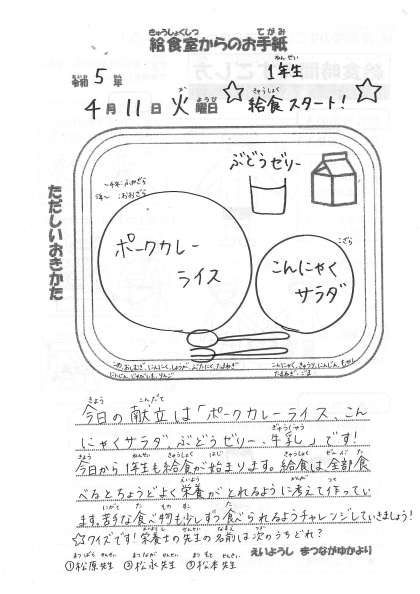 給食室からのお手紙
令和5年 1年生
4月11日火曜日 ☆給食スタート!☆
ただしいおきかた
ぶどうゼリー
ポークカレー
ライス
こんにゃく
サラダ
今日の献立は「ポークカレーライス、こん
にゃくサラダ、ぶどうゼリー、牛乳」です!
今日から1年生も給食が始まります。給食は全部食
べるとちょうどよく栄養がとれるように考えて作ってい
ます。苦手な食べ物も少しずつ食べられるようチャレンジしていきましょう!
☆クイズです!栄養士の先生の名前は次のうちどれ?
①松原先生 ②松永先生 ③松本先生
えいようし まつながゆかより